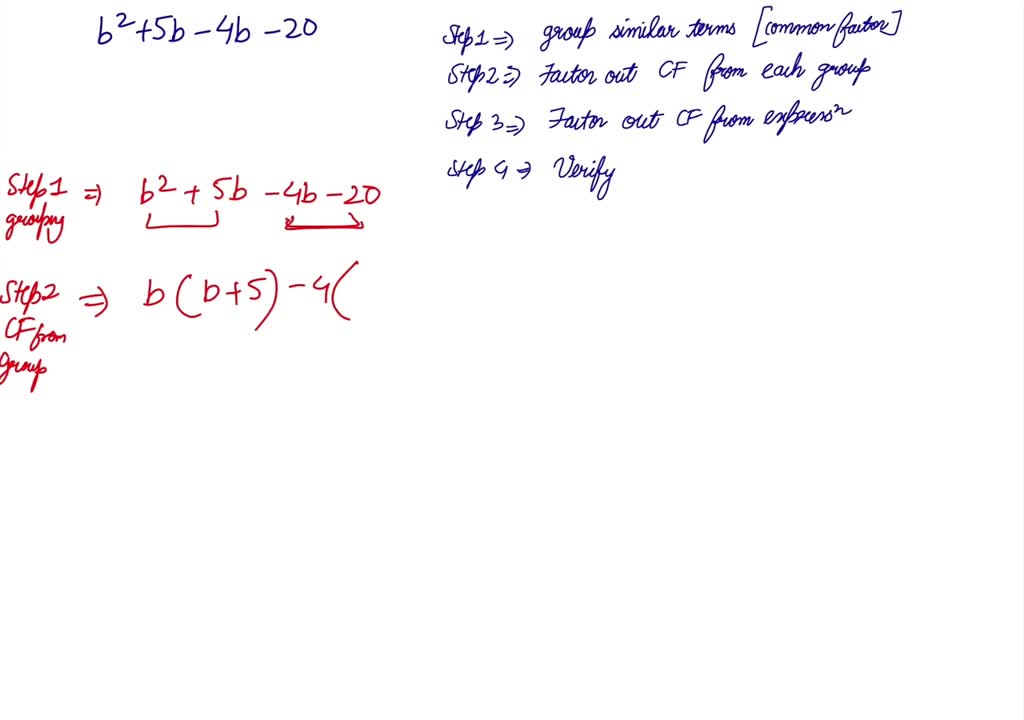 b²+5b-4b-20
Step1 ⇒ group similar terms [common factor]
Step2 ⇒ Factor out CF from each group
Step 3 ⇒ Factor out CF from expressⁿ
Step 4 ⇒ Verify
Step1 ⇒ b² + 5b - 4b - 20
grouping
Step2 ⇒ b(b+5)-4(
CF from
group